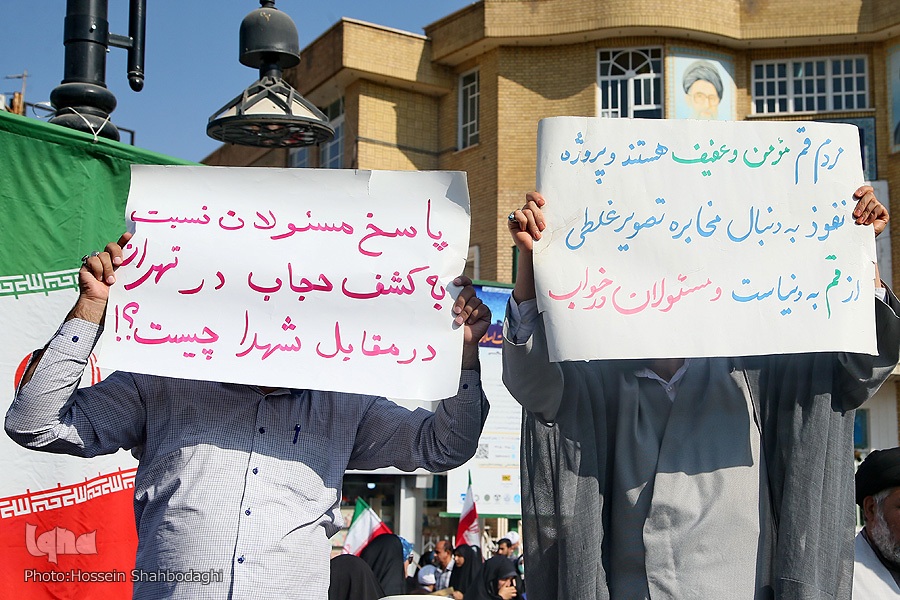 پاسخ مسئولان نسبت
به کشف حجاب در تهران
در مقابل شهدا چیست؟!
مردم قم مؤمن و عفیف هستند و پروژه
نفوذ به دنبال مخابره تصویر غلطی
از قم به دنیاست و مسئولان در خواب
iqna
Photo:Hossein Shahbodaghi